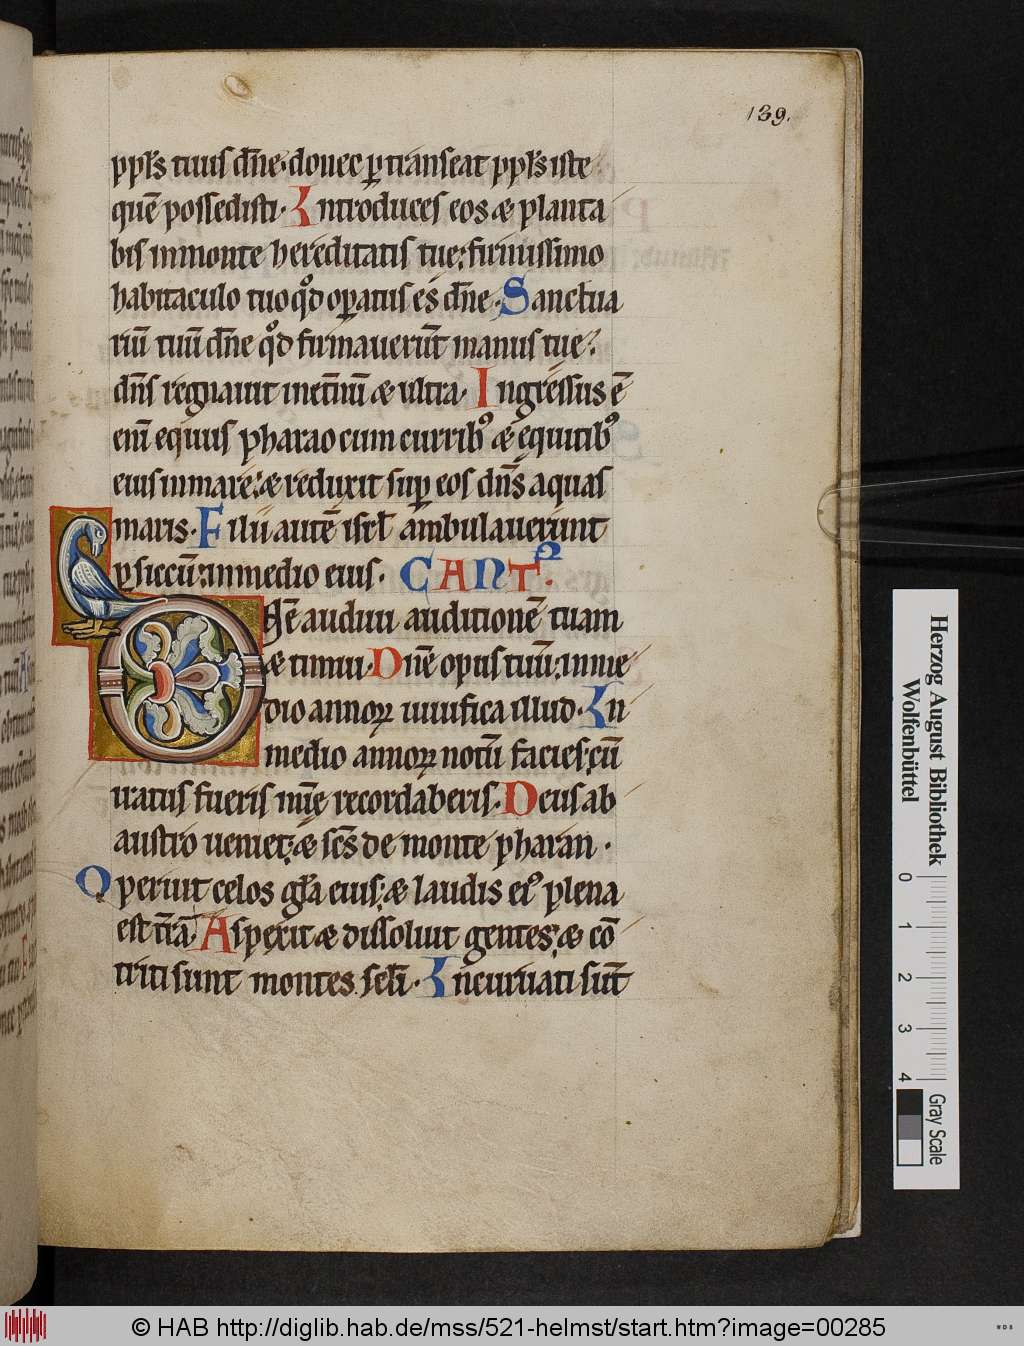 139.
ppl̄s tuus dn̄e· donec ꝑtranseat ppl̄s iste
quē possedisti· Introduces eos æ planta
bis inmonte hereditatis tue; firmissimo
habitaculo tuo qͦd oꝑatus es dn̄e· Sanctua
riū tuū dn̄e qͦd firmauerūt manus tue;
dn̄s regnauit inet̄nū æ ultra· Ingressus ē
enī equus pharao cum curribꝰ æ equitibꝰ
eius inmare; æ reduxit suꝑ eos dn̄s aquas
maris· Filii autē isrl̄ ambulauerunt
ꝑ siccū; inmedio eius· CANT̄·
Dn̄E audiui auditionē tuam
æ timui· Dn̄e opus tuū; inme
dio annoꝝ uiuifica illud· In
medio annoꝝ notū facies; cū
iratus fueris mīę recordaberis· Deus ab
austro ueniet; æ sc̄s de monte pharan·
Operuit celos gl̄a eius; æ laudis eiꝰ plena
est t̄ra· Aspexit æ dissoluit gentes; æ cō
triti sunt montes sēli· Incuruati sūt
Herzog August Bibliothek
Wolfenbüttel
0 1 2 3 4
Gray Scale
© HAB http://diglib.hab.de/mss/521-helmst/start.htm?image=00285